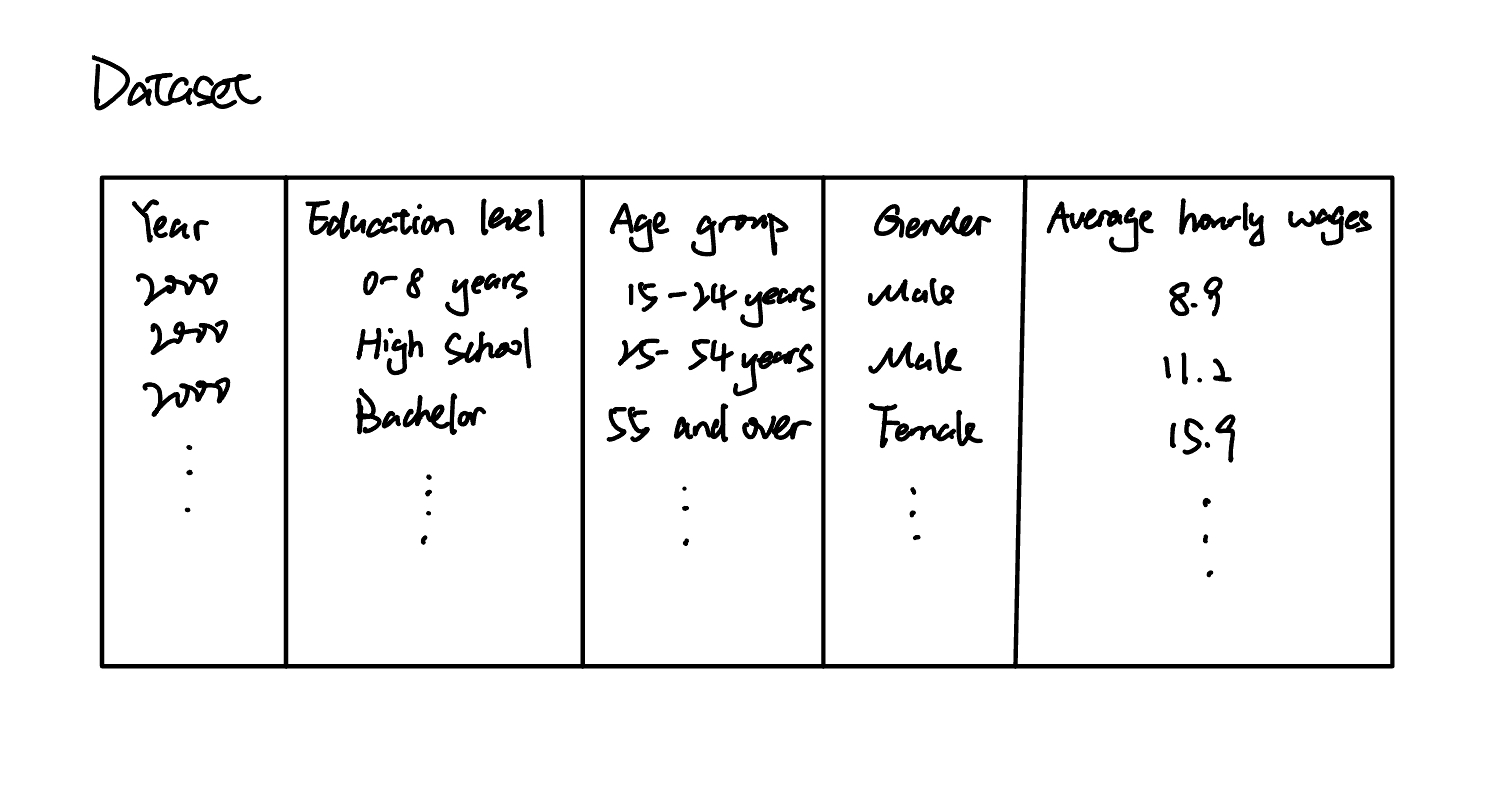 Dataset
Year Education level Age group Gender Average hourly wages
2000 0-8 years 15-24 years Male 8.9
2000 High School 25-54 years Male 11.2
2000 Bachelor 55 and over Female 15.9